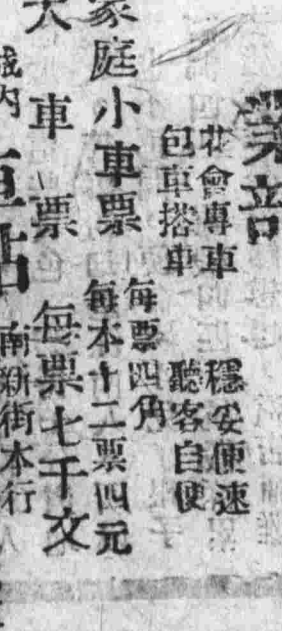 業部
花會專車 穩妥便速
包車搭車 聽客自便
每票四角
家庭小車票 每本十二票四元
大車票 每票七千文
城內車站 南新街本行